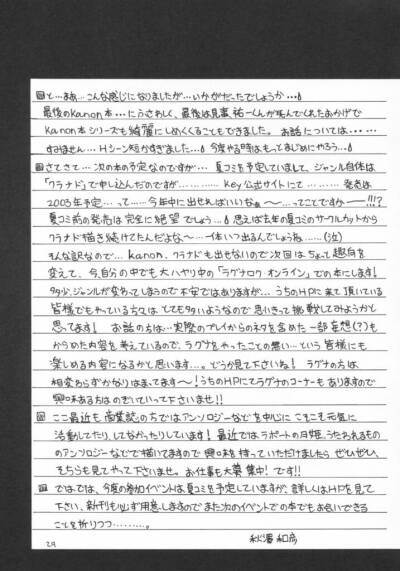 と…まぁ…こんな感じになりましたが…いかがだったでしょうか…
最後のkanon本…にふさわしく、最後は見事 祐一くんが死んでくれたおかげで
Kanon本シリーズも綺麗にしめくくることもできました。 お話については……
すみません…Hシーン短かすぎました…今度やる時はもってまじめにやろう…
さてさて…次の本の予定なのですが… 夏コミを予定していまして、ジャンル自体は
「クラナド」で申し込んだのですが………… Key公式サイトにて……… 発売は
2003年予定…って……今年中に出ればいいなぁ〜…ってことですみー!!!?
夏コミ前の発売は完全に絶望でしょう…思えば去年の夏のサークルカットから
クラナド描き続けてたんだよな〜…一体いつ出るんでしょうね……(泣)
そんな訳なので…kanon、クラナドも出ないので次回はちょって趣向を
変えて、今、自分の中でも大ハヤリ中の「ラグナロク オンライン」での本にします!
多少、ジャンルが変わってしまるので不安ではありますが…うちのHPに来て頂いている
皆様でもやっている方々はとても多いようなので思いきって挑戦してみようかと
思ってます! お話の方は…実際のプレイからのネタを含めた一部妄想(?)も
からめた内容を考えているので、ラグナをやったことの無い…という皆様にも
楽しめる内容になるかと思います…。どうか見て下さいね! ラグナの方は
相変わらずかなりはまってます〜!うちのHPにてラグナのコーナーもありますので
興味ある方はのぞいていって下さいませ!!
ここ最近も 商業誌の方ではアンソロジーなどを中心に こそこそ元気に
活動してたり、してなかったりしています! 最近ではラポートの月姫、うたわれるもの
のアンソロジーなどで描いてますので 興味を持っていただけましたら ぜひぜひ、
そちらも見てやって下さいませ。お仕事も大募集中!です!!
ではでは、今度の参加イベントは夏コミを予定していますが、詳しくはHPを見て
下さい、新刊も必ず用意しますのでまた次のイベントでの本でもお会いできる
ことを祈りつつ………。
秋澤 和彦
29